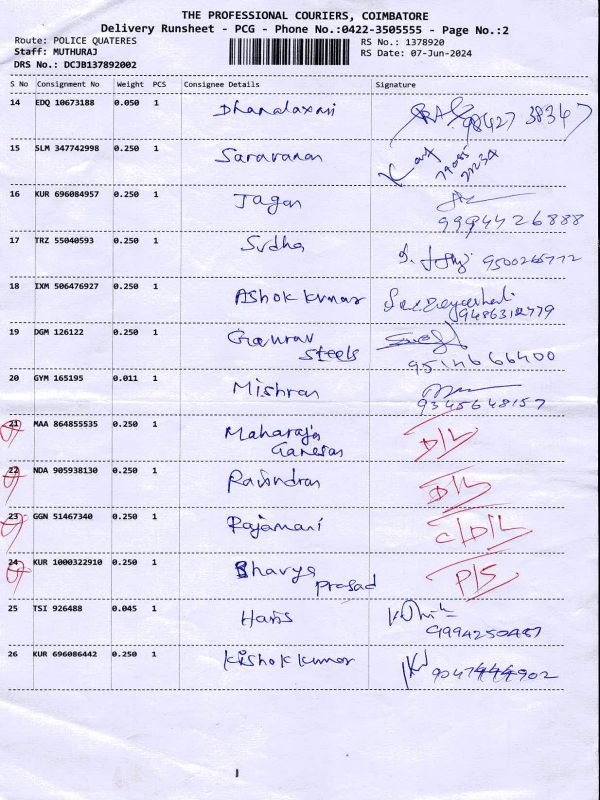 THE PROFESSIONAL COURIERS, COIMBATORE
Delivery Runsheet - PCG - Phone No.:0422-3505555 - Page No.:2
Route: POLICE QUATERES RS No.: 1378920
Staff: MUTHURAJ RS Date: 07-Jun-2024
DRS No.: DCJB137892002
S No Consignment No Weight PCS Consignee Details Signature
14 EDQ 10673188 0.050 1 Dhanalaxmi 98427 38347
15 SLM 347742998 0.250 1 Saravanan
16 KUR 696084957 0.250 1 Jagan
9994426888
17 TRZ 55040593 0.250 1 Sudha
18 IXM 506476927 0.250 1 Ashok kumar
19 DGM 126122 0.250 1 Gaurav
Steels 9514666400
20 GYM 165195 0.011 1 Mishran
9345648157
21 MAA 864855535 0.250 1 Maharaja D/L
Ganesan
22 NDA 905938130 0.250 1 Ravindran D/L
23 GGN 51467340 0.250 1 Rajamani C/D/L
24 KUR 1000322910 0.250 1 Bhavya P/S
prasad
25 TSI 926488 0.045 1 Haris
9994250487
26 KUR 696086442 0.250 1 Kishok kumar